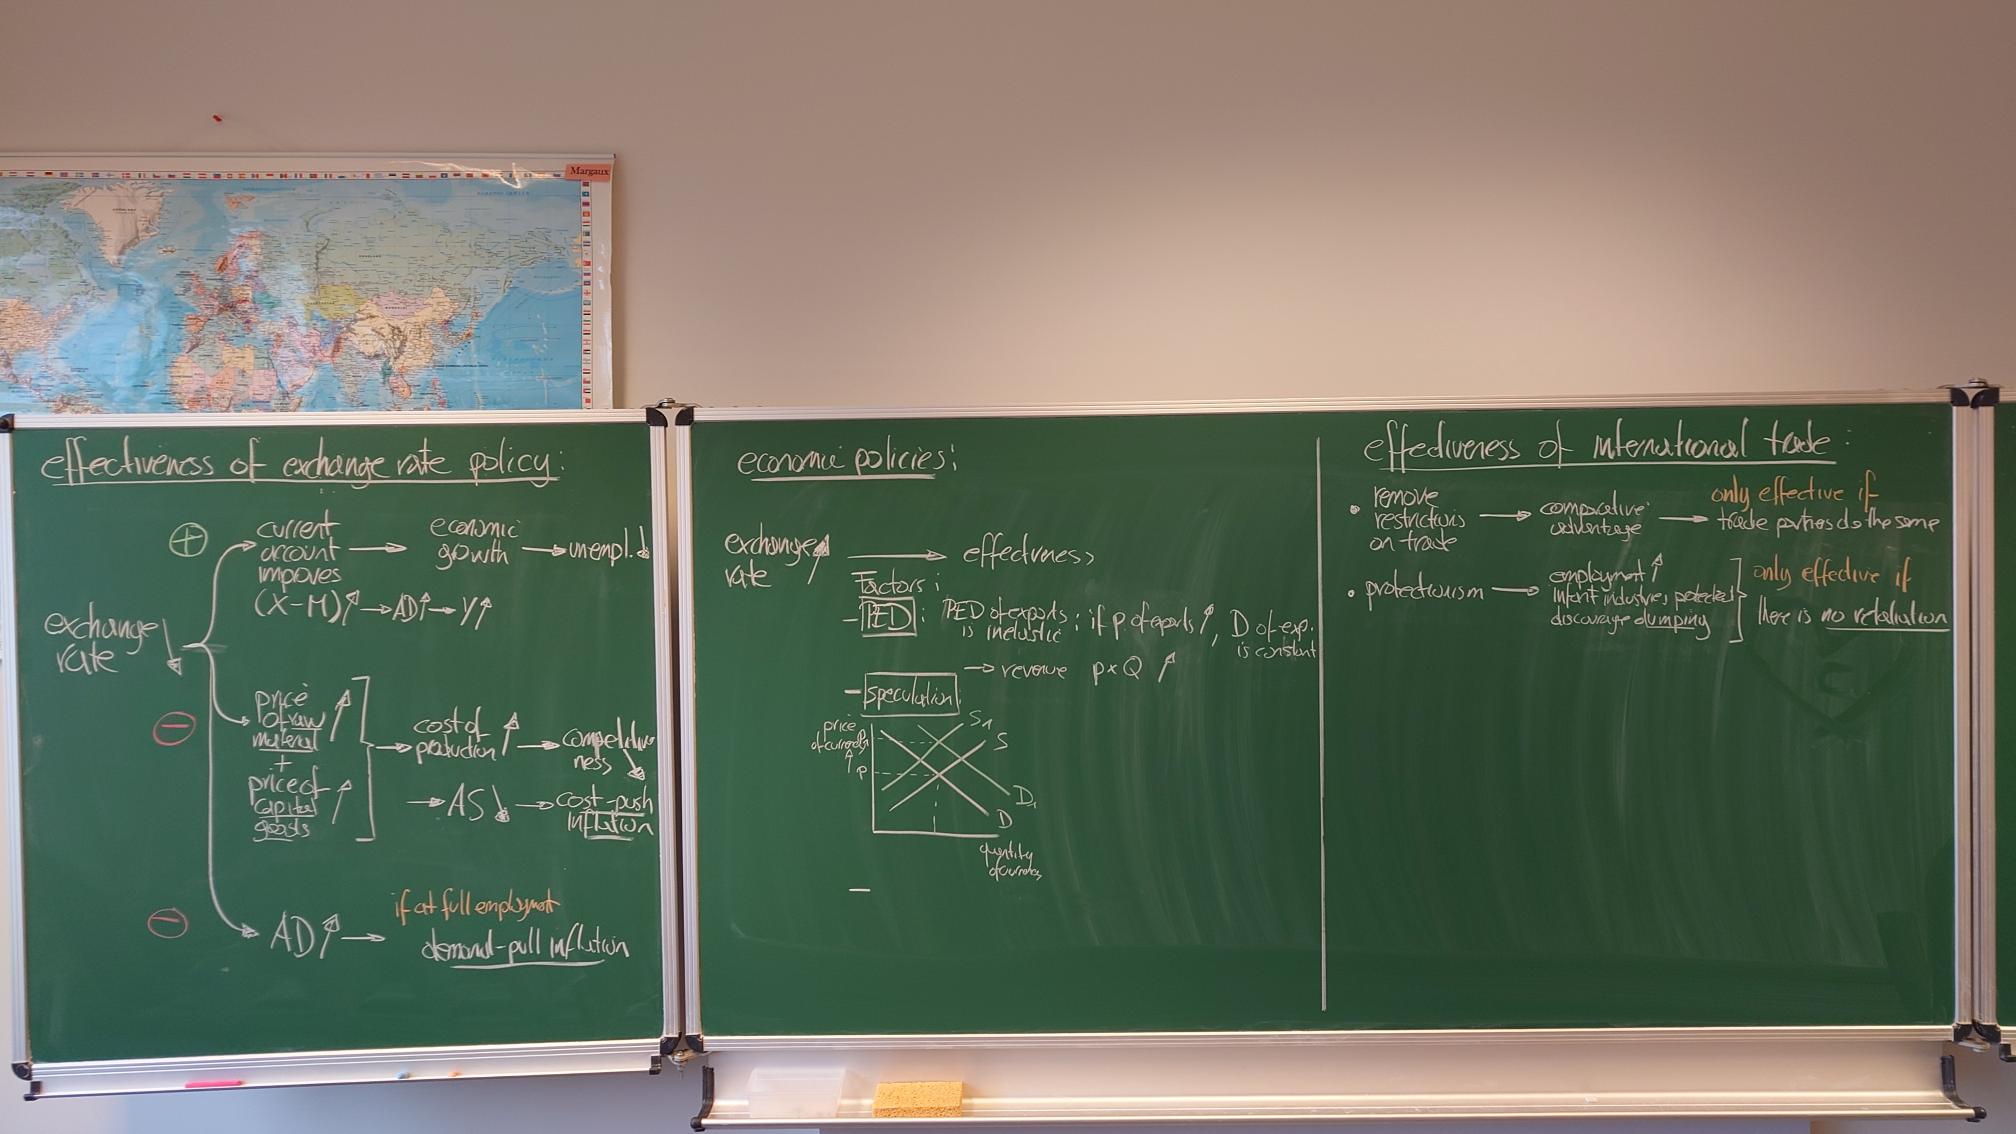 Margaux
effectiveness of exchange rate policy:
current
account
improves
(X-M)↑ → AD↑ → Y↑
economic
growth
unempl.↓
exchange
rate ↓
price
of raw
material
+
price of
capital
goods
cost of
production ↑
competitive
ness
→ AS↓
cost-push
inflation
AD↑ →
if at full employment
demand-pull inflation
economic policies:
exchange
rate ↑
effectiveness
Factors:
- PED: PED of exports: if p. of exports ↑, D of exp.
is inelastic
is constant
→ revenue p×Q ↑
- speculation:
price
of currency
P
S1
S
D1
D
quantity
of currency
-
effectiveness of international trade:
• remove
restrictions
on trade
→ comparative
advantage
→ only effective if
trade partners do the same
• protectionism →
employment ↑
infant industries protected
discourage dumping
only effective if
there is no retaliation